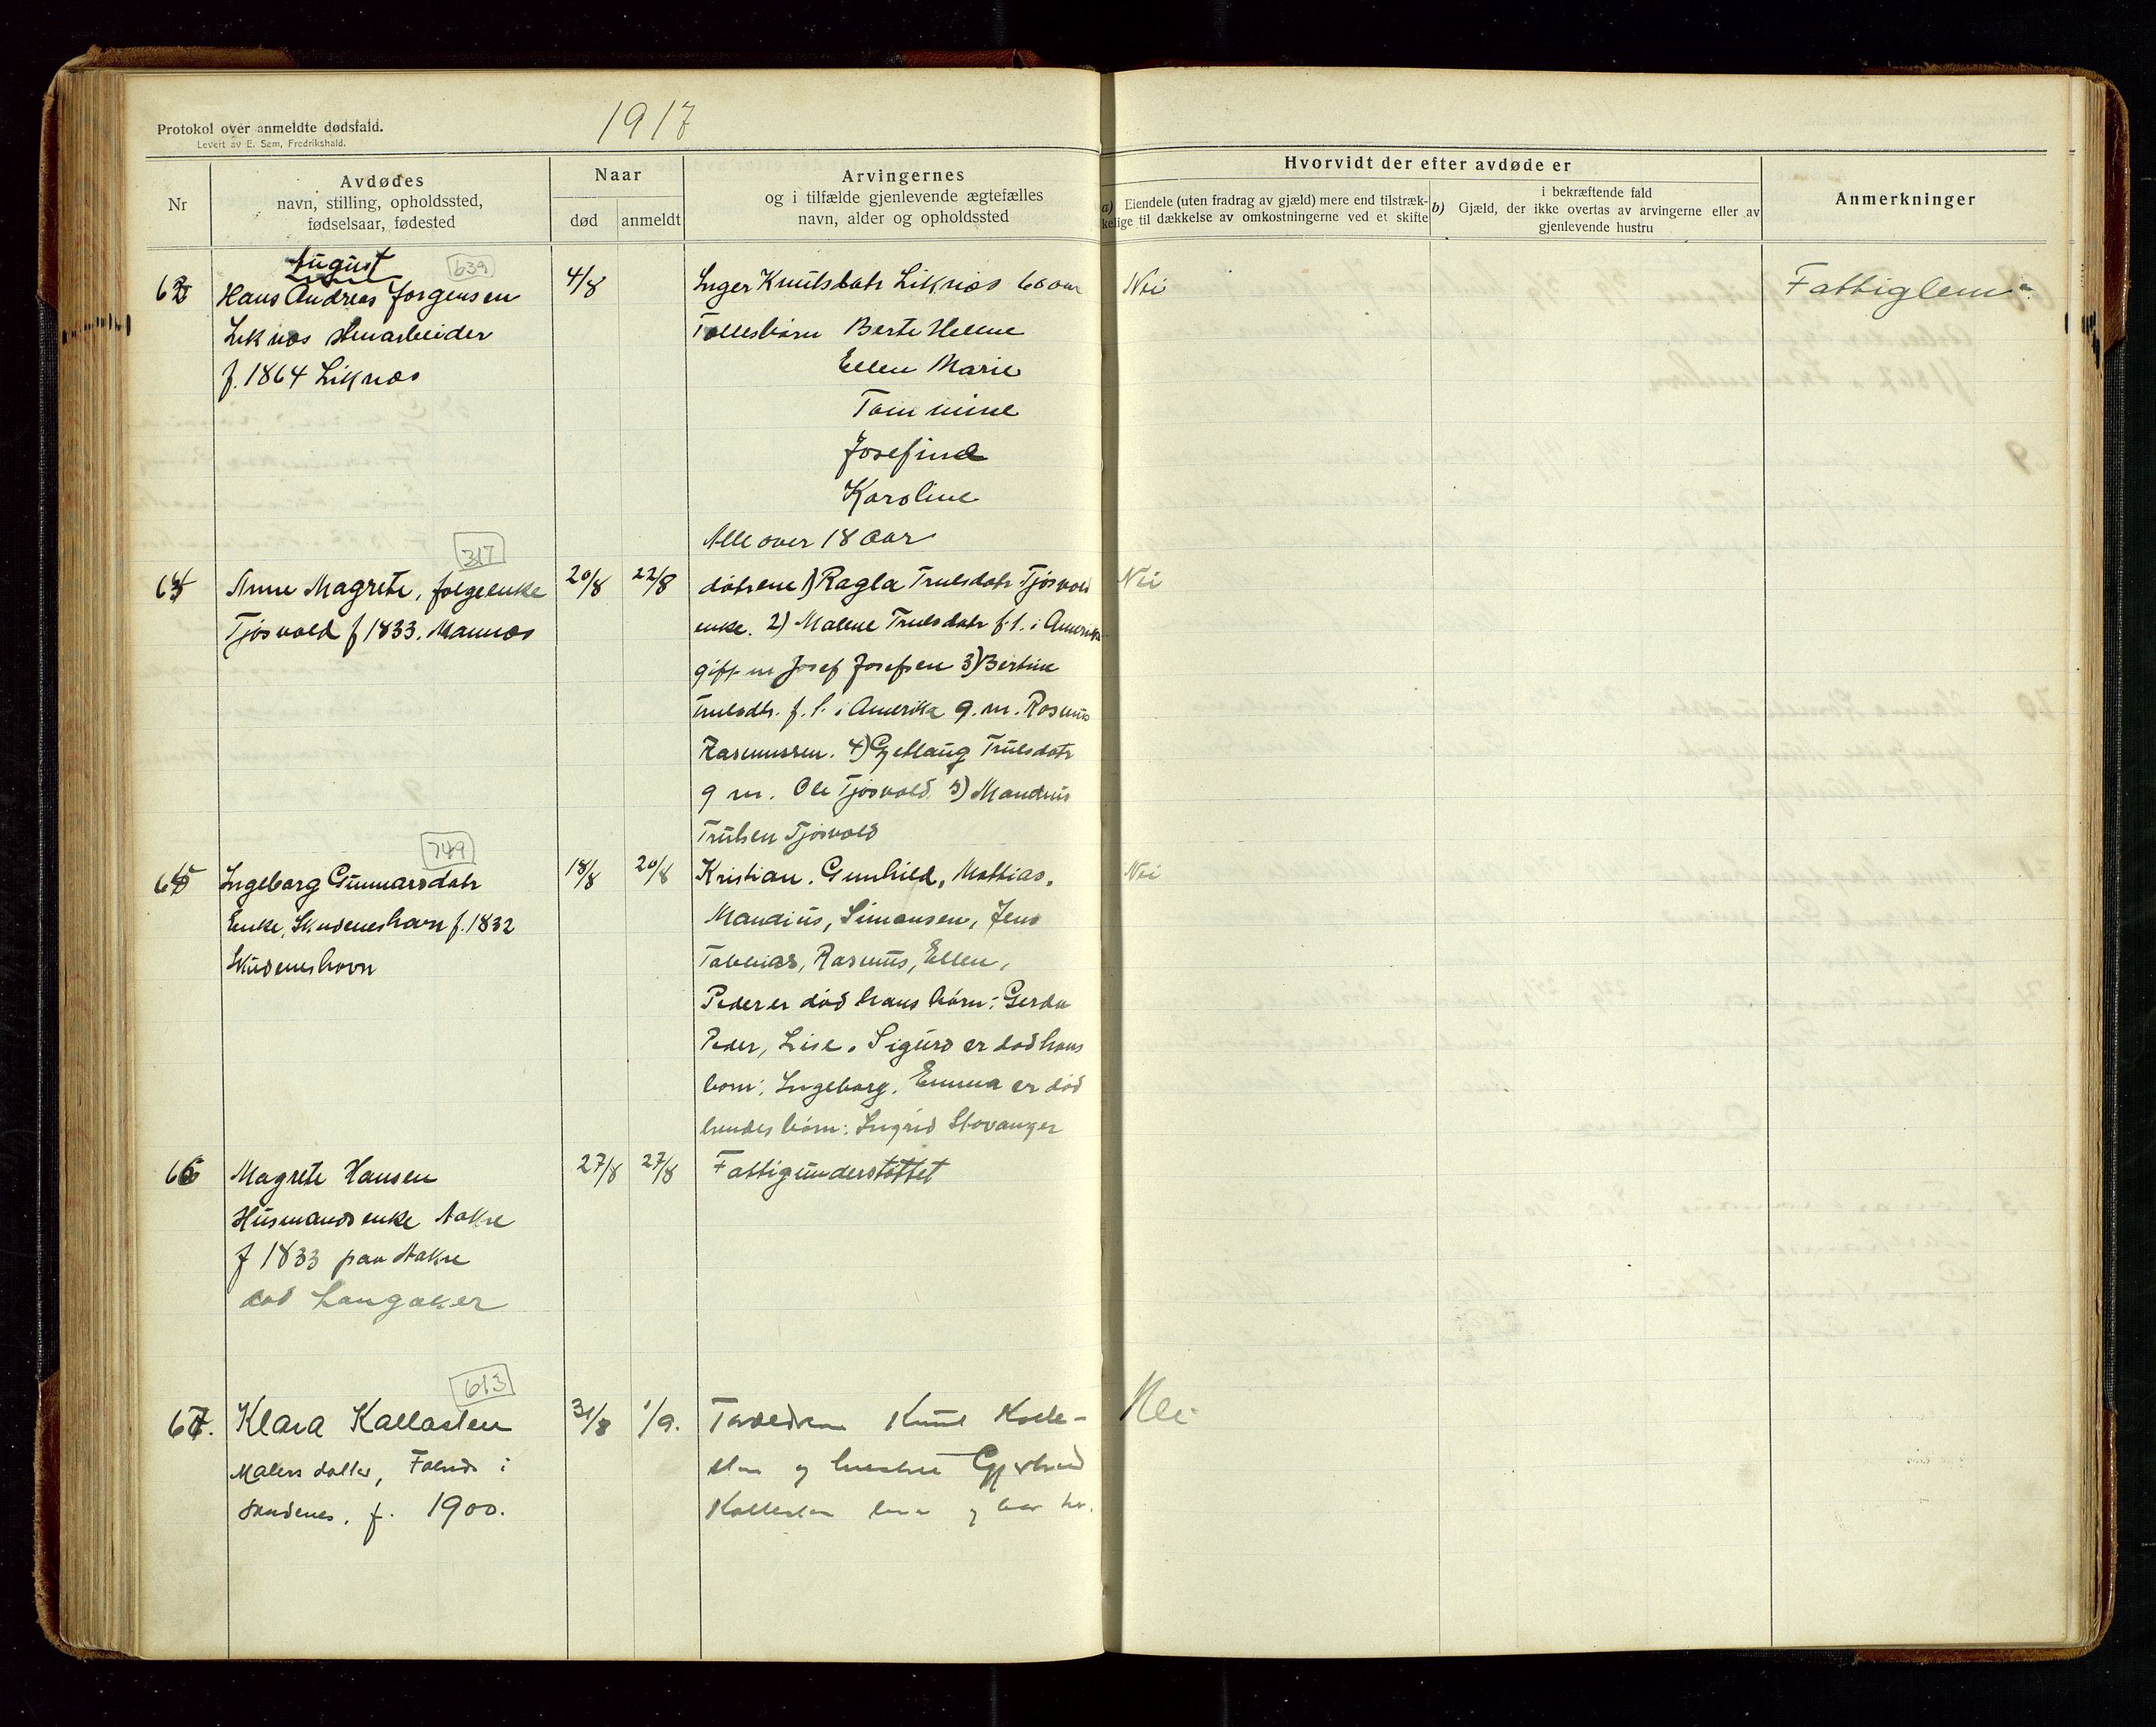 1917
Protokol over anmeldte dødsfald.
Levert av E. Sem, Fredrikshald.
Nr
Avdødes
navn, stilling, opholdssted,
fødselsaar, fødested
Naar
død
anmeldt
Arvingernes
og i tilfælde gjenlevende ægtefælles
navn, alder og opholdssted
Hvorvidt der efter avdøde er
a) Eiendele (uten fradrag av gjæld) mere end tilstræk-
kelige til dækkelse av omkostningerne ved et skifte
b) i bekræftende fald
Gjæld, der ikke overtas av arvingerne eller av
gjenlevende hustru
Anmerkninger
August
639
Hans Andreas Jorgensen
Liknes stenarbeider
f. 1864 Liknes
4/8
Inger Knutsdatr Liknes 60 aar
Fellesbørn Berte Helene
Ellen Marie
Tommine
Josefine
Karoline
Alle over 18 Aar
Nei
Fattiglem
317
Anne Magrete, folgeenke
Tjösvold f 1833. Mannes
20/8
22/8
døtrene 1) Ragla Trulsdatr Tjösvold
enke. 2) Malene Trulsdatr f.t. i Amerika
gift m Josef Josefsen 3) Bertine
Trulsdtr. f. t. i Amerika g. m. Rasmus
Rasmussen. 4) Trulsdatr
g m. Ole Tjösvold. 5) Mandius
Trulsen Tjösvold
Nei
749
Ingeborg Gunnarsdatr
Enke, Skudeneshavn f. 1832
Skudeneshavn
18/8
20/8
Kristian. Gunhild, Mathias,
Mandius, Simonsen, Jens
Tobias, Rasmus, Ellen,
Peder er död hans børn: Gerda
Peder, Lise. Sigurd er død hans
born: Ingeborg. Emma er död
hendes børn: Ingrid Stavanger
Nei
66
Magrete Hansen
Husmandsenke Aakre
f 1833 paa Aakre
død Langaker
27/8
27/8
Fattigunderstöttet
613
67.
Klara Kallasten
Malers datter, Falnes i
Skudenes. f. 1900.
31/8
1/9.
Forældrene Knut Kalle-
sten og hustru Gjertrud
Kallesten
Nei